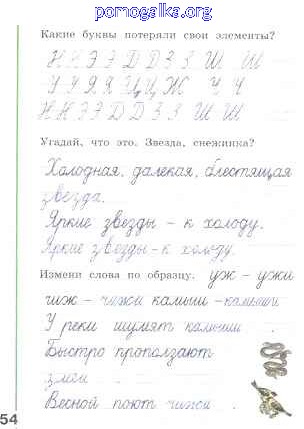 pomogalka.org
Какие буквы потеряли свои элементы?
Н Н Э Э Д Д З З Ш Ш
У У Я Я Ц Ц Ж Ч Ч
Н Н Э Э Д Д З З Ш Ш
Угадай, что это. Звезда, снежинка?
Холодная, далекая, блестящая
звезда.
Яркие звезды – к холоду.
Яркие звезды – к холоду.
Измени слова по образцу. уж – ужи
чиж – чижи камыш – камыши
У реки шумят камыши .
Быстро проползают
змеи .
Весной поют чижи .
54